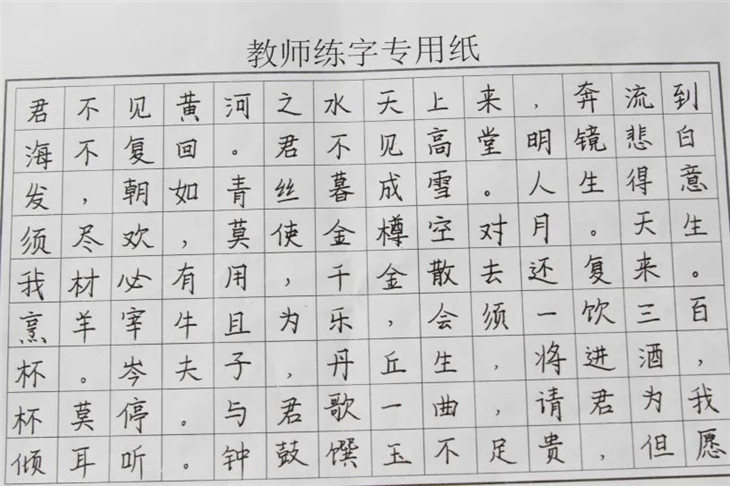 教师练字专用纸
君不见黄河之水天上来，奔流到
海不复回。君不见高堂明镜悲白
发，朝如青丝暮成雪。人生得意
须尽欢，莫使金樽空对月。天生
我材必有用，千金散去还复来。
烹羊宰牛且为乐，会须一饮三百
杯。岑夫子，丹丘生，将进酒，
杯莫停。与君歌一曲，请君为我
倾耳听。钟鼓馔玉不足贵，但愿